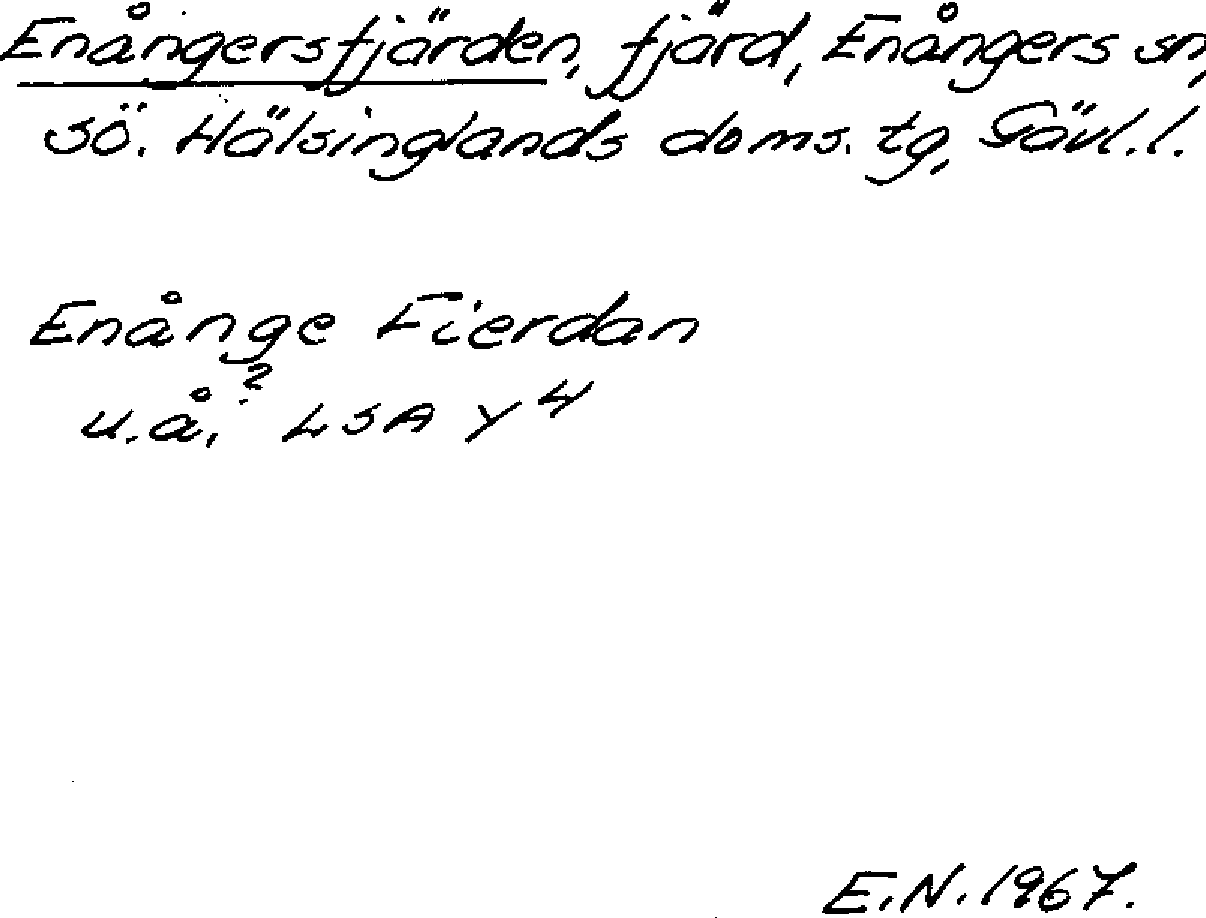 Enångersfjärden, fjärd, Enångers sn,
sö. Hälsinglands doms. tg, Gävl. l.
Enånge Fierdan
u.å.? LSA Y 4
E.N. 1967.